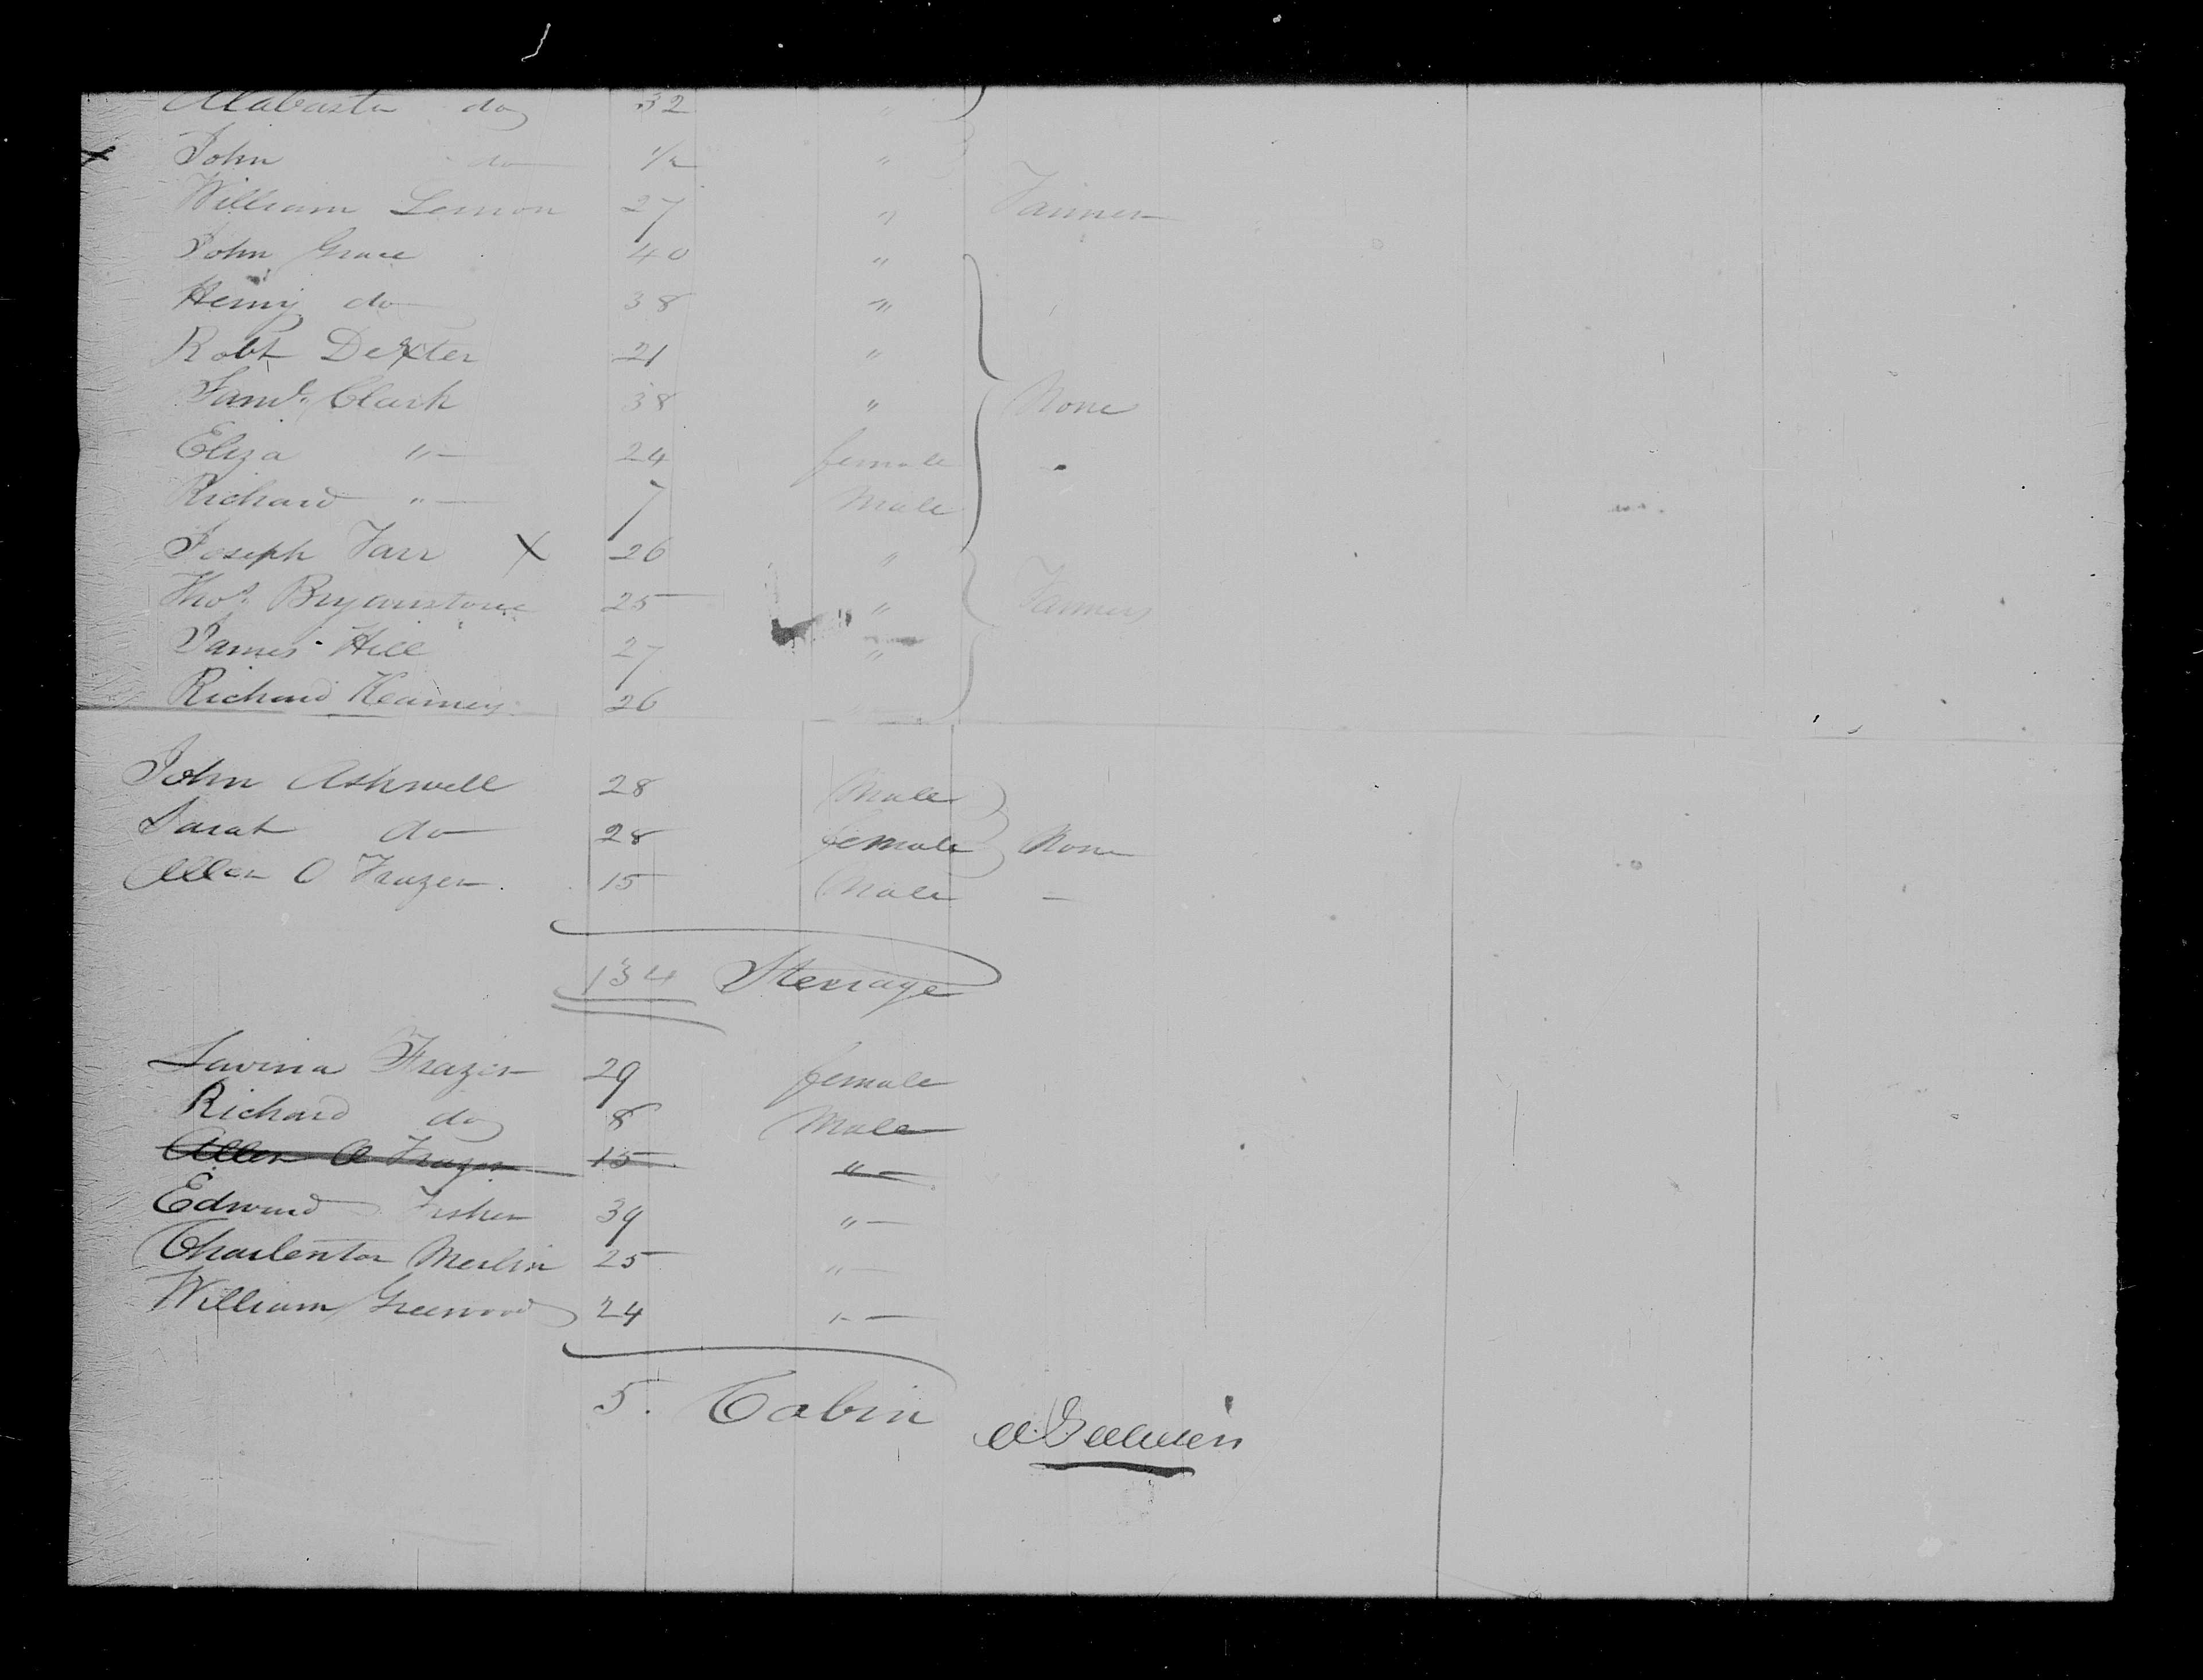 Alabasta do 32 "
x John do 1/2 "
William Lemon 27 " Farmer
John Grace 40 "
Henry do 38 "
Robt Dexter 21 "
Saml. Clark 38 " None
Eliza " 24 female
Richard " 7 Male
Joseph Farr X 26 "
Thos. 25 " Farmers
James Hill 27 "
Richard Kearney 26
John Ashwell 28 Male
Sarah do 28 female None
Allen O Frazer. 15 Male —
134 Sterrage
Lavinia Frazer 29 female
Richard do 8 Male
Allen O Frazer 15 "
Edward Fisher 39 "
Charlenton Merlin 25 "
William Greenwood 24 "
5. Cabin